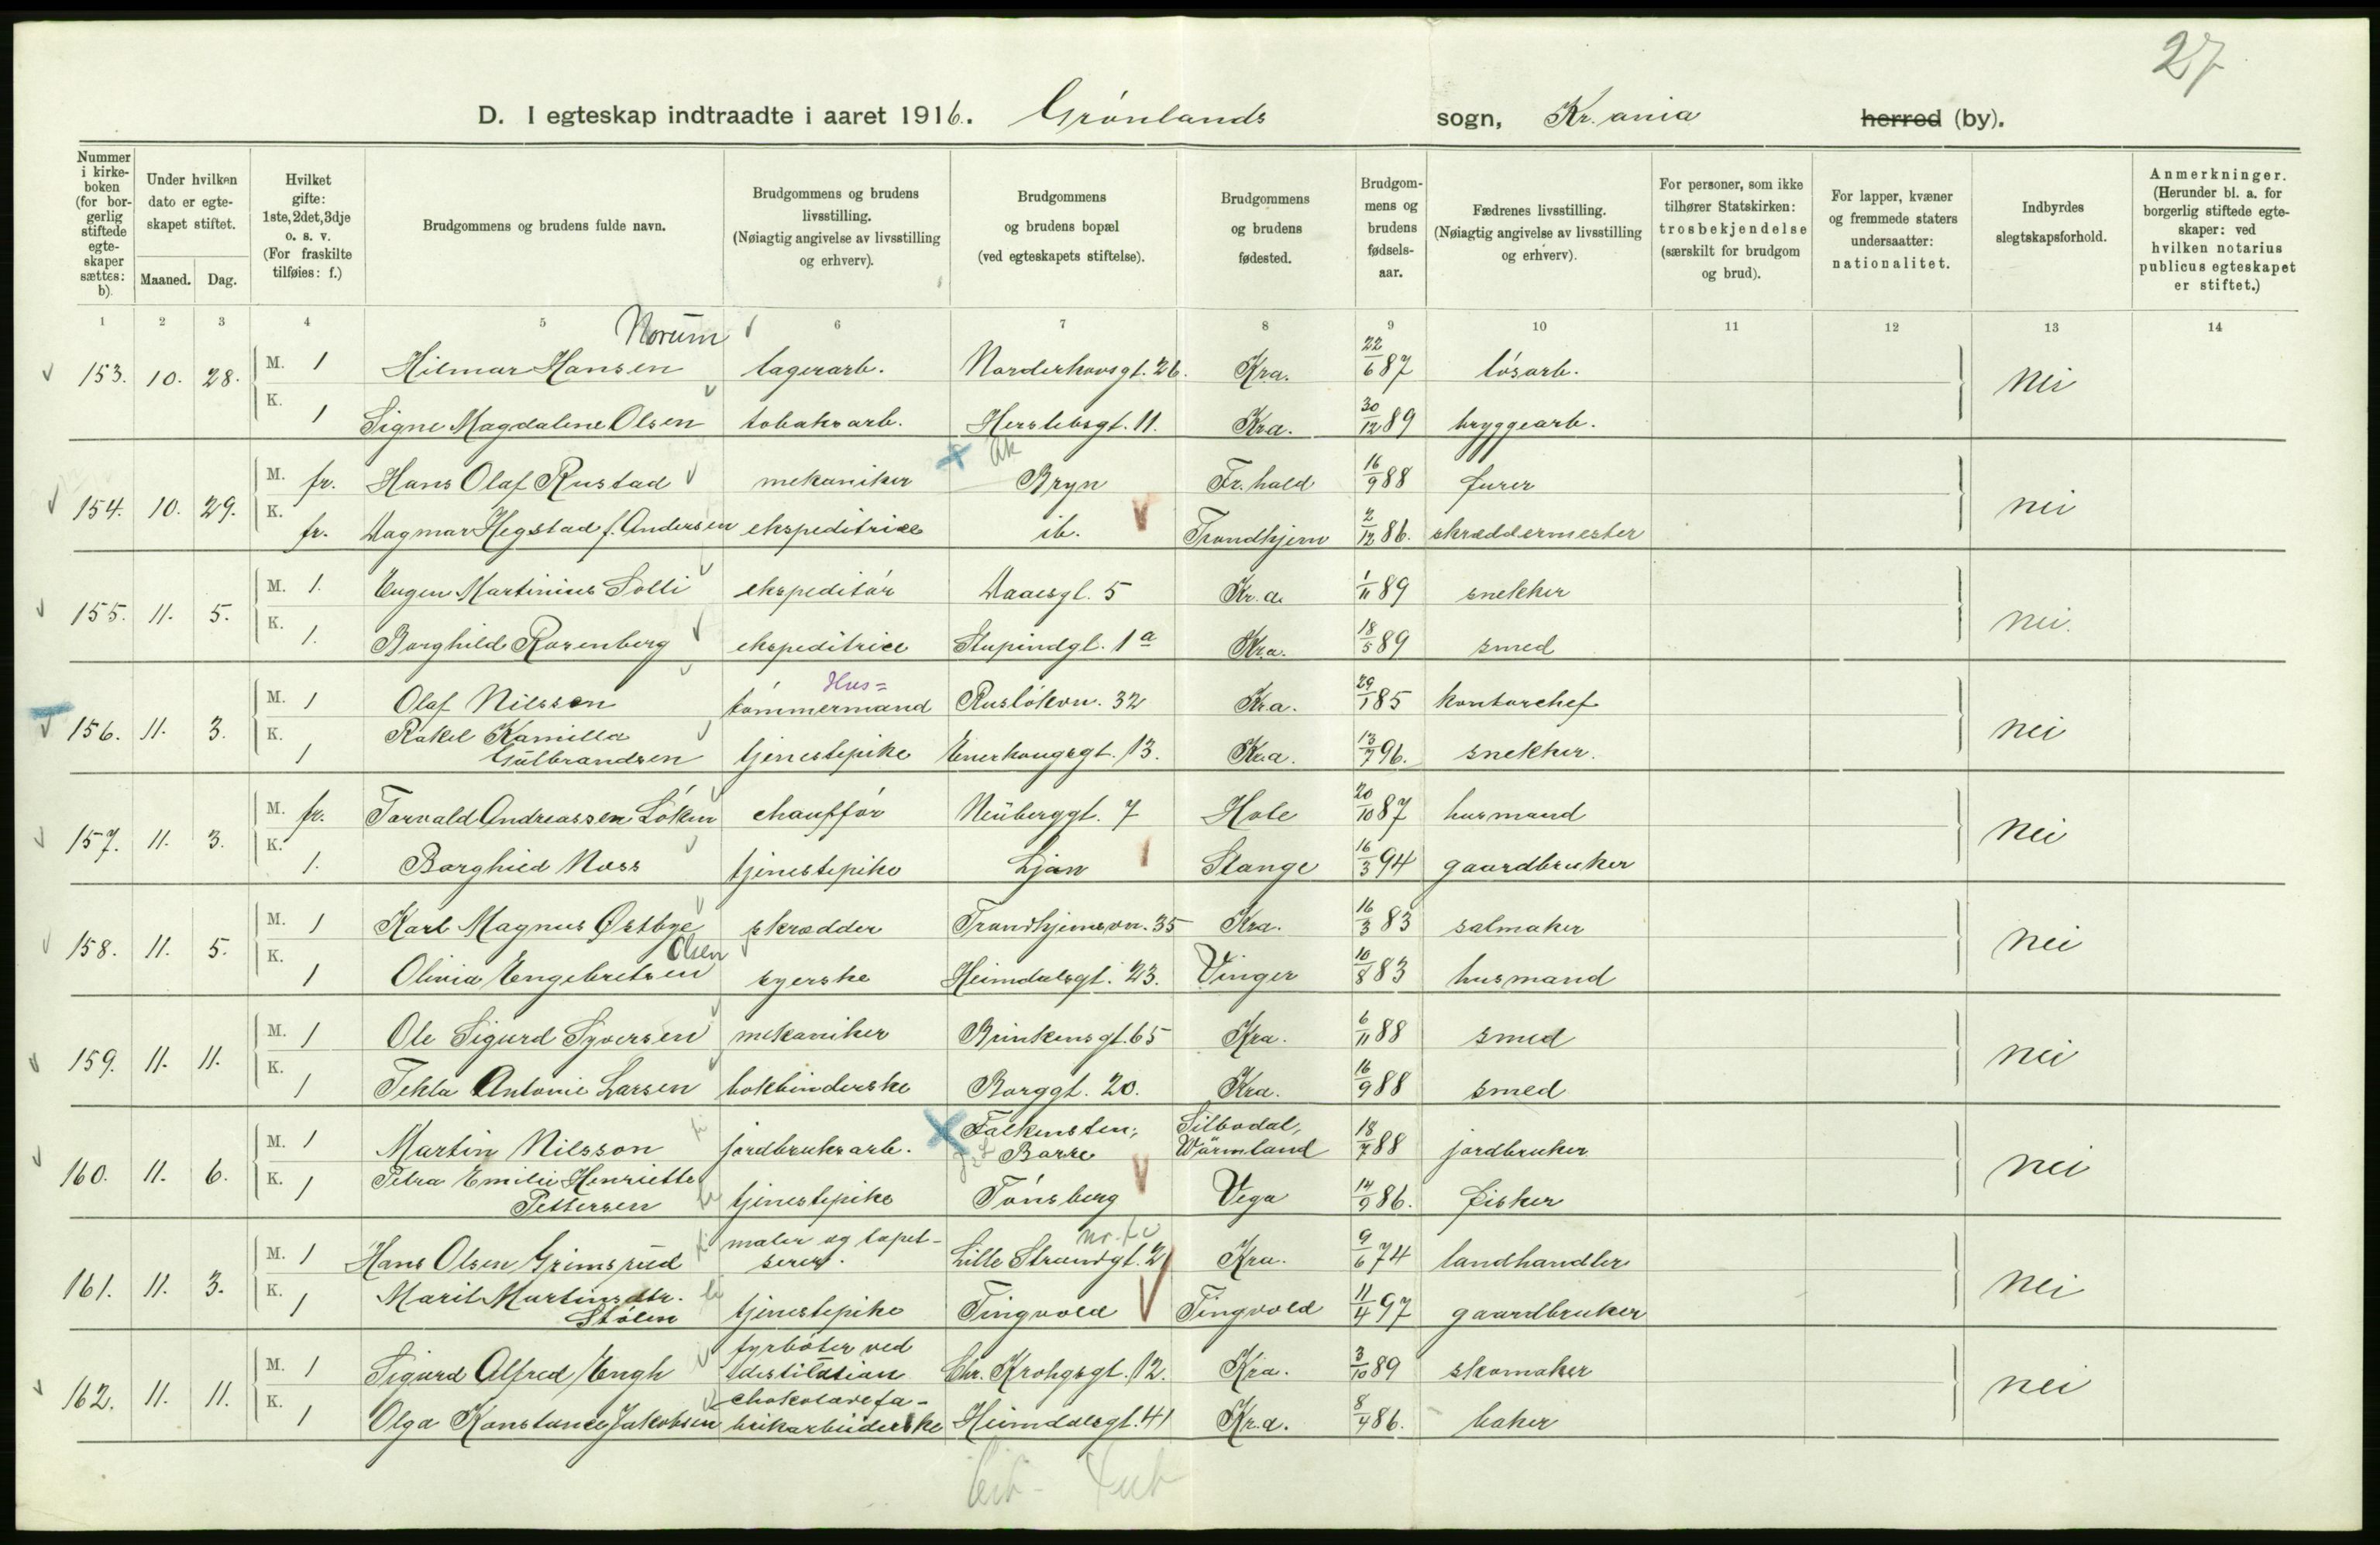 27
D. I egteskap indtraadte i aaret 1916. Grønlands sogn, Kr.ania herred (by).
Nummer i kirkeboken (for borgerlig stiftede egteskaper sættes: b).
Under hvilken dato er egteskapet stiftet.
Maaned. Dag.
Hvilket gifte: 1ste, 2det, 3dje o. s. v. (For fraskilte tilføies: f.)
Brudgommens og brudens fulde navn.
Brudgommens og brudens livsstilling. (Nøiagtig angivelse av livsstilling og erhverv).
Brudgommens og brudens bopæl (ved egteskapets stiftelse).
Brudgommens og brudens fødested.
Brudgommens og brudens fødselsaar.
Fædrenes livsstilling. (Nøiagtig angivelse av livsstilling og erhverv).
For personer, som ikke tilhører Statskirken: trosbekjendelse (særskilt for brudgom og brud).
For lapper, kvæner og fremmede staters undersaatter: nationalitet.
Indbyrdes slegtskapsforhold.
Anmerkninger. (Herunder bl. a. for borgerlig stiftede egteskaper: ved hvilken notarius publicus egteskapet er stiftet.)
1 2 3 4 5 6 7 8 9 10 11 12 13 14
Norum
153. 10. 28. M. 1 Hilmar Hansen lagerarb. Norderhovsgt. 26. Kra. 22/6 87 løsarb. Nei
K. 1 Signe Magdalene Olsen tobaksarb. Herslebsgt. 11. Kra. 30/12 89 bryggearb.
Ak
154. 10. 29. M. fr. Hans Olaf Rustad mekaniker Bryn Fr.hald 16/9 88 furer nei
K. fr. Dagmar Hegstad f. Andersen ekspeditrice ib. Trondhjem 2/12 86. skræddermester
155. 11. 5. M. 1. Eugen Martinius Solli ekspeditør Daaesgt. 5 Kr.a. 1/11 89 snekker nei.
K. 1. Borghild Rosenberg ekspeditrice Stupindgt. 1a Kra. 18/5 89 smed
Hus=
156. 11. 3. M. 1 Olaf Nilssen tømmermand Rusløkvn. 32 Kra. 29/1 85 kontorchef nei
K. 1 Rakel Kamilla
Gulbrandsen tjenestepike Enerhougsgt. 13. Kra. 13/7 96. snekker.
157. 11. 3. M. fr. Torvald Andreassen Løken chauffør Neuberggt. 7 Hole 20/10 87 husmand Nei
K. 1. Borghild Noss tjenestepike Ljan Stange 16/3 94 gaardbruker
158. 11. 5. M. 1 Karl Magnus Østbye skrædder Trondhjemsvn. 35 Kra. 16/3 83 salmaker nei
Olsen
K. 1 Olivia Engebretsen syerske Heimdalsgt. 23. Vinger 10/8 83 husmand
159. 11. 11. M. 1 Ole Sigurd Syversen mekaniker Brinkensgt. 65 Kra. 6/11 88 smed nei
K. 1 Tekla Antonie Larsen bokbinderske Borggt. 20. Kra. 16/9 88 smed
160. 11. 6. M. 1 Martin Nilsson jordbruksarb. Falkensten, Borre Silbodal, Wärmland 18/7 88 jordbruker nei
K. 1 Petra Emilie Henriette
Pettersen tjenestepike Tønsberg Vega 14/9 86. fisker
161. 11. 3. M. 1 Hans Olsen Grimsrud maler og tapetserer. Lille Strandgt. 2 Kra. 9/6 74 landhandler nei
K. 1 Marit Martinsdtr.
Stølen tjenestepike Tingvold Tingvold 11/4 97 gaardbruker
162. 11. 11. M. 1 Sigurd Alfred Engh fyrbøter ved destilasion Chr. Krohgsgt. 12. Kra. 3/10 89 skomaker nei
K. 1 Olga Konstance Jakobsen chokoladefabrikarbeiderske Heimdalsgt. 41 Kr.a. 8/4 86. baker